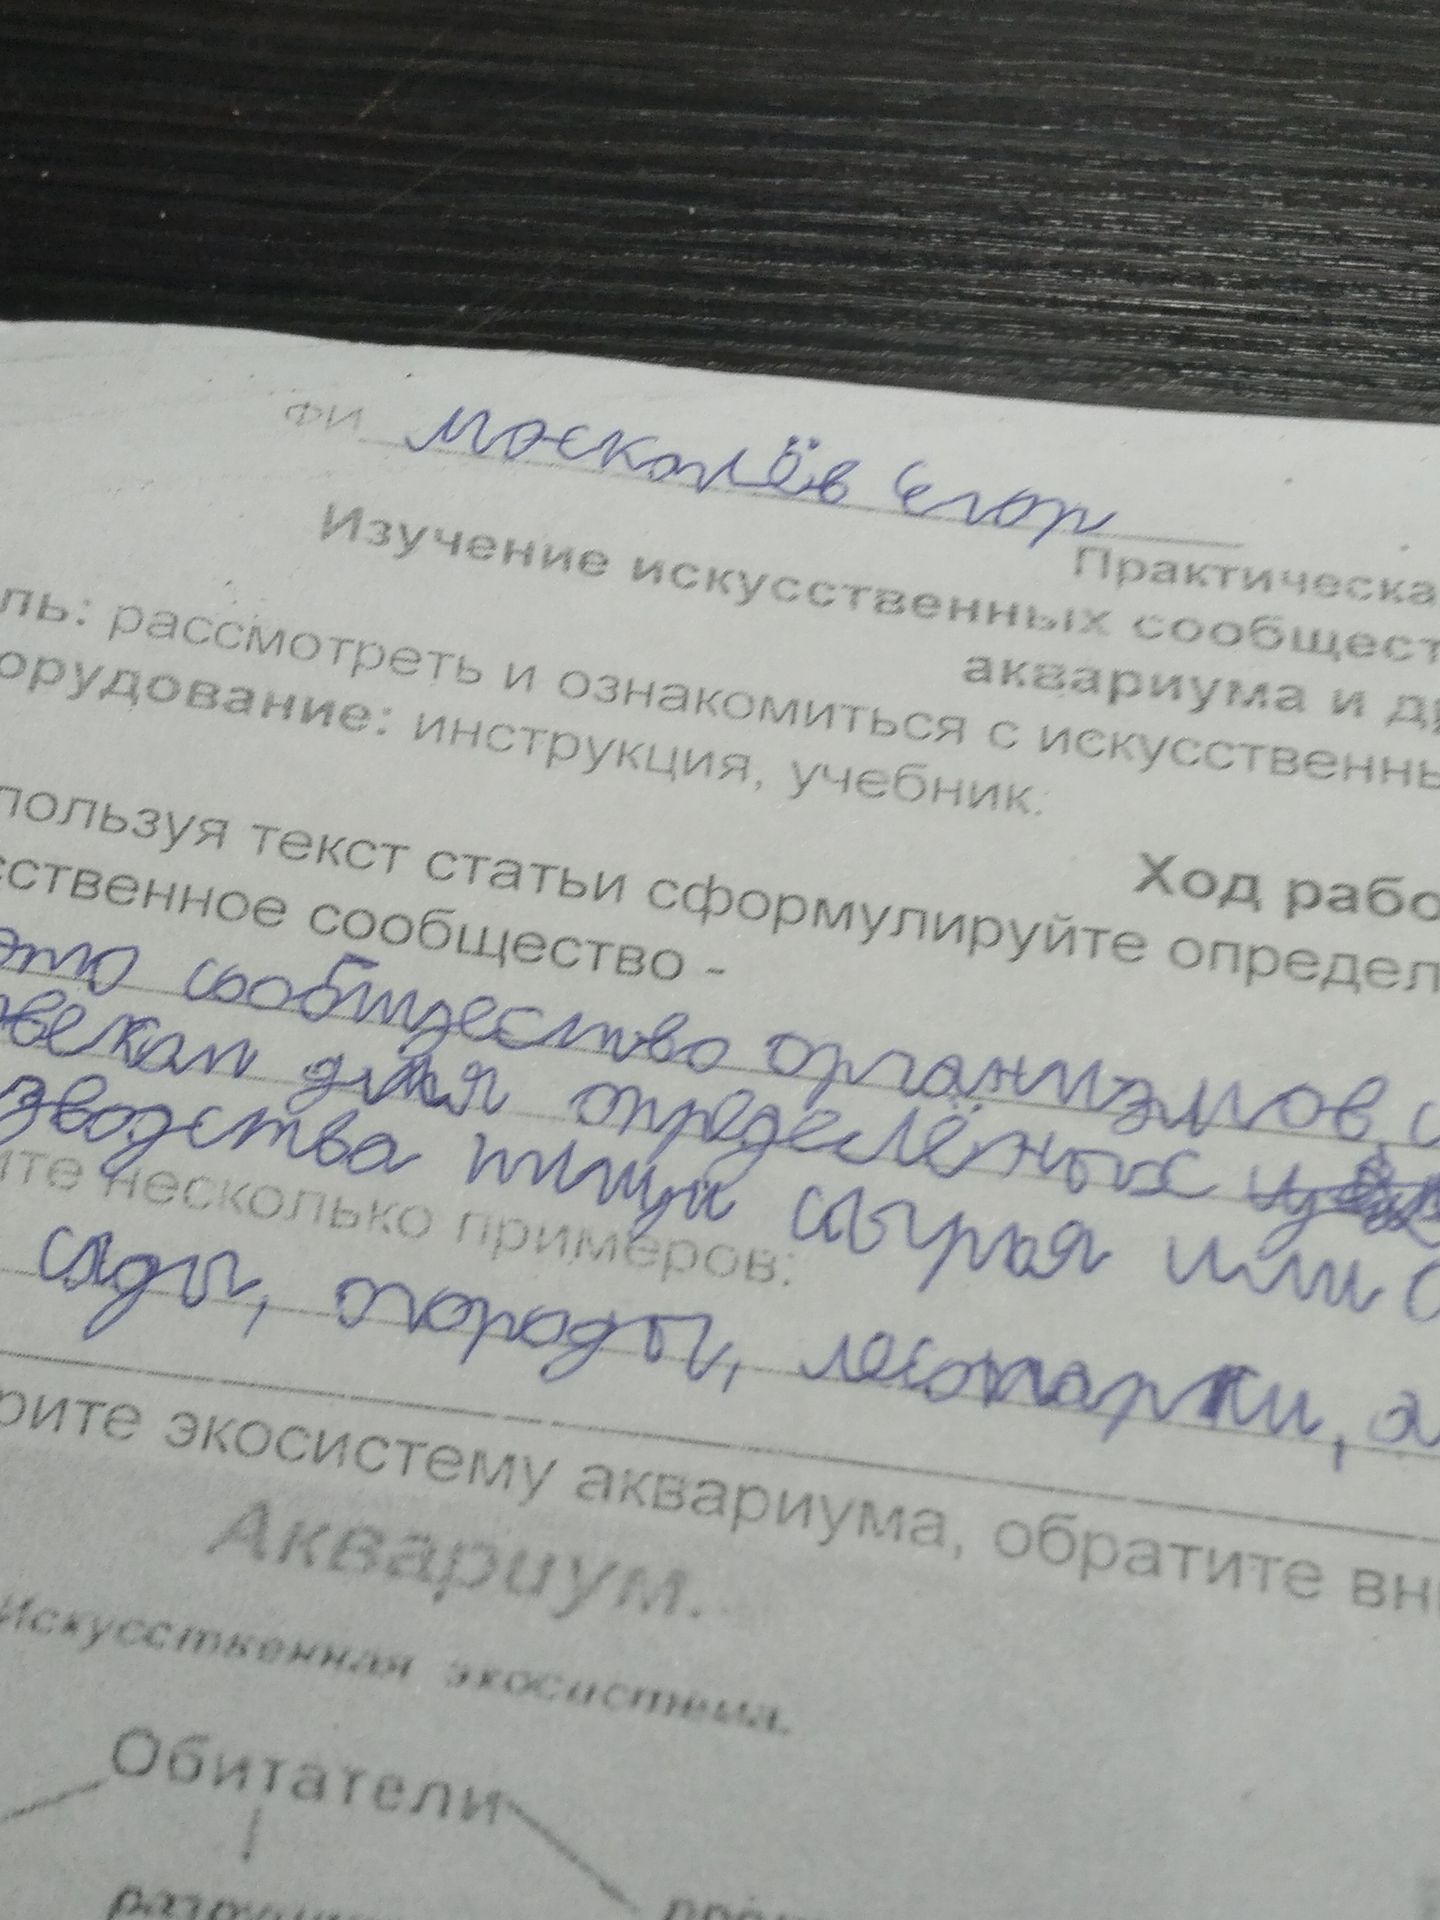 ФИ Москалёв Егор
Практическа
Изучение искусственных сообщест
аквариума и др
ль: рассмотреть и ознакомиться с искусственны
орудование: инструкция, учебник.
Ход рабо
пользуя текст статьи сформулируйте определ
сственное сообщество -
это сообщество организмов, с
овекам для определёных
зводства пищи сырья или о
ите несколько примеров:
сады, огороды, лесопарки, а
рите экосистему аквариума, обратите вни
Аквариум.
Искусственная экосистема.
Обитатели